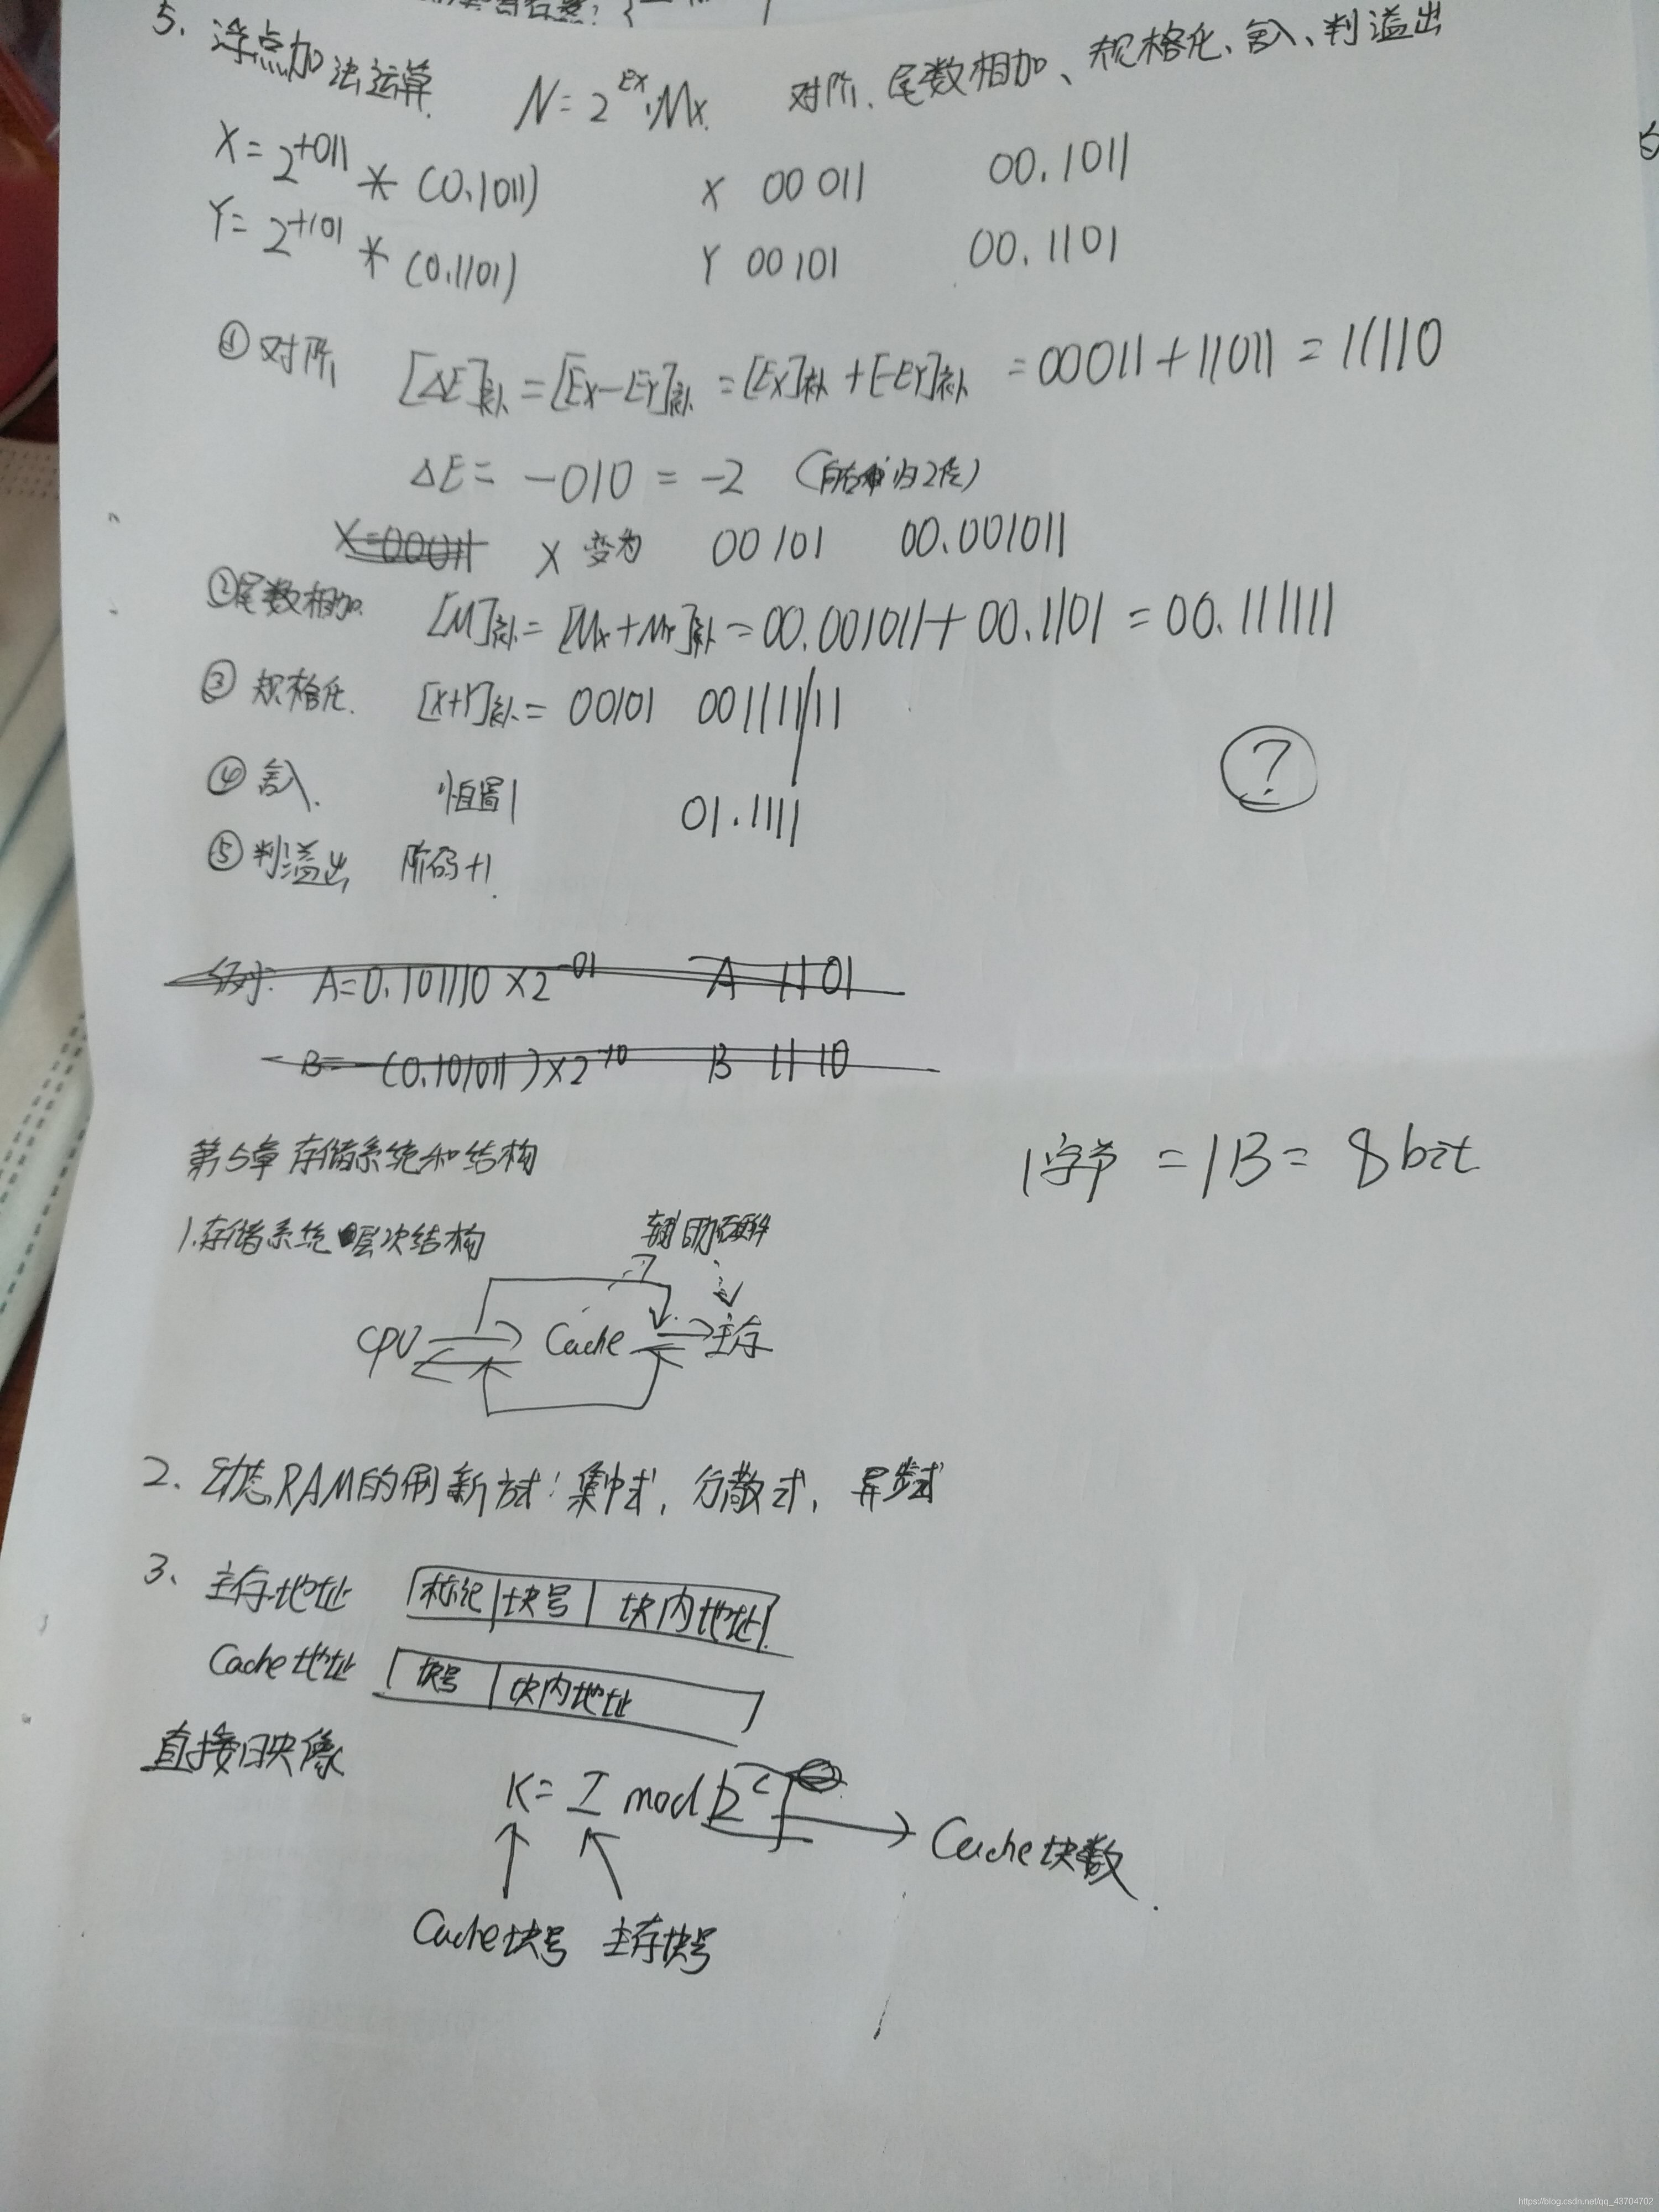 5. 浮点加法运算 N=2^Ex·Mx 对阶、尾数相加、规格化、舍入、判溢出
X=2^+011 * (0.1011) X 00 011 00.1011
Y=2^+101 * (0.1101) Y 00 101 00.1101
① 对阶 [ΔE]补=[Ex-EY]补=[Ex]补+[-EY]补=00011+11011=11110
ΔE=-010=-2 (向右 2位)
X=00011 X 变为 00 101 00.001011
②尾数相加 [M]补=[Mx+MY]补=00.001011+00.1101=00.111111
③ 规格化 [X+Y]补=00101 00111111
?
④ 舍入 恒置1 01.1111
⑤ 判溢出 阶码+1
例: A=0.101110×2^-01 A 11 01
B=-(0.101011)×2^-10 B 11 10
第5章 存储系统和结构 1字节=1B=8bit
1.存储系统层次结构 辅助硬件
CPU Cache 主存
2、动态RAM的刷新方式:集中式,分散式,异步式
3、主存地址 标记 块号 块内地址
Cache地址 块号 块内地址
直接映像
K=I mod 2^c Cache块数
Cache块号 主存块号
https://blog.csdn.net/qq_43704702